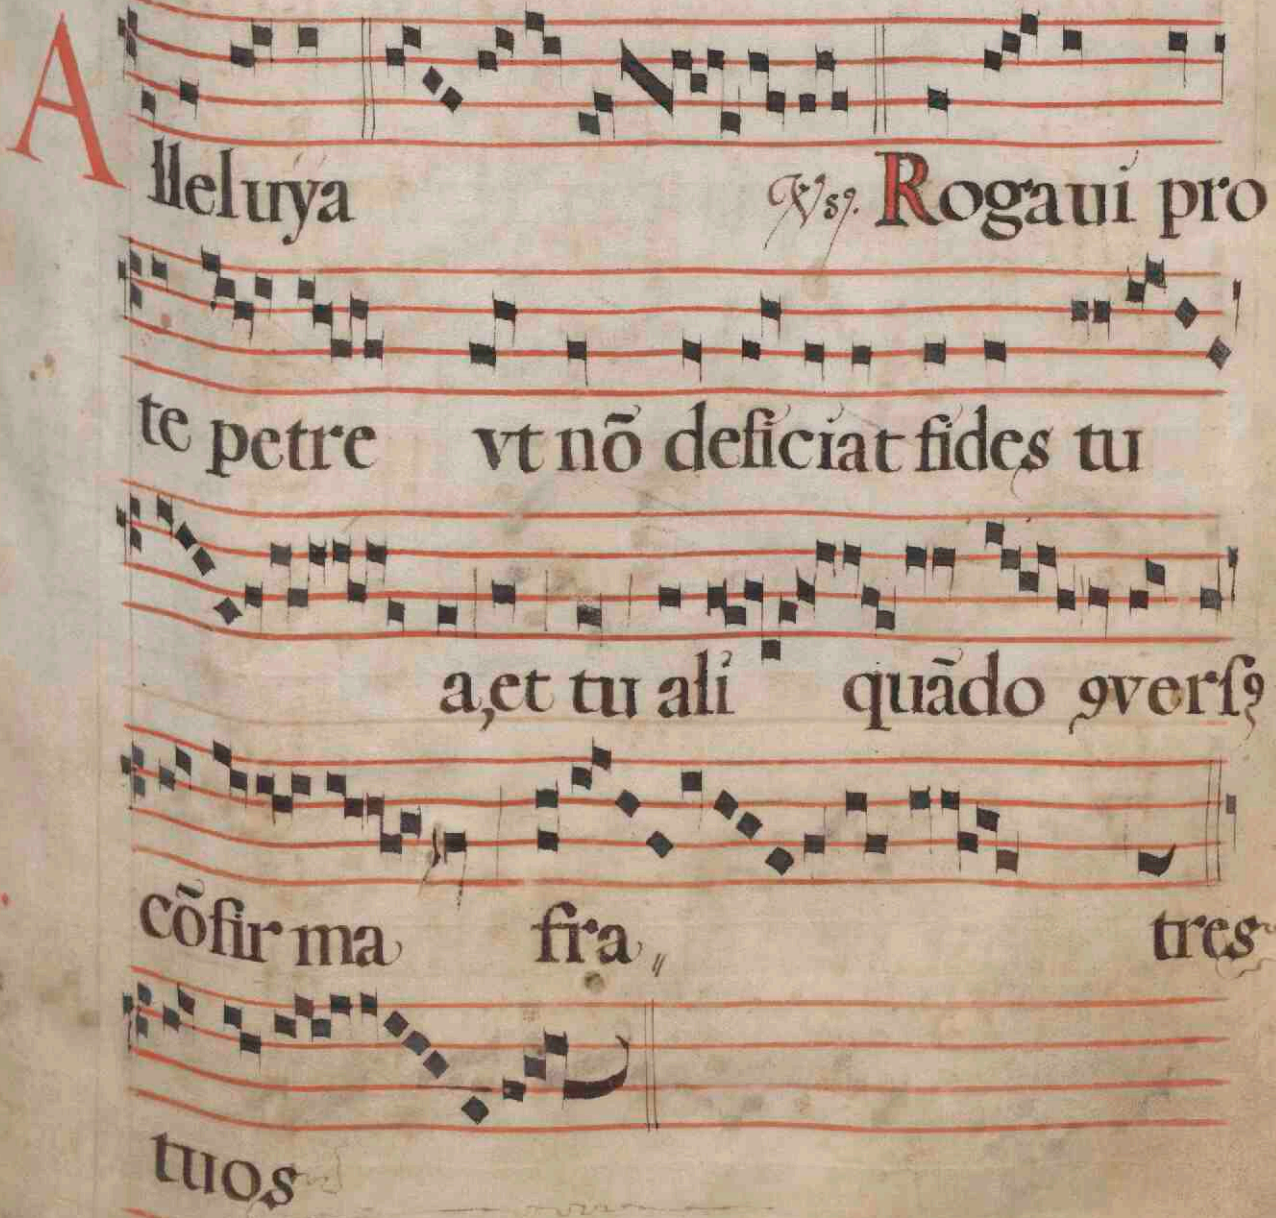 Alleluya Vsꝰ. Rogaui pro
te petre vt nõ deficiat fides tu
a, et tu ali quãdo ꝯverſꝰ
cõfir ma fra〃 tres
tuos